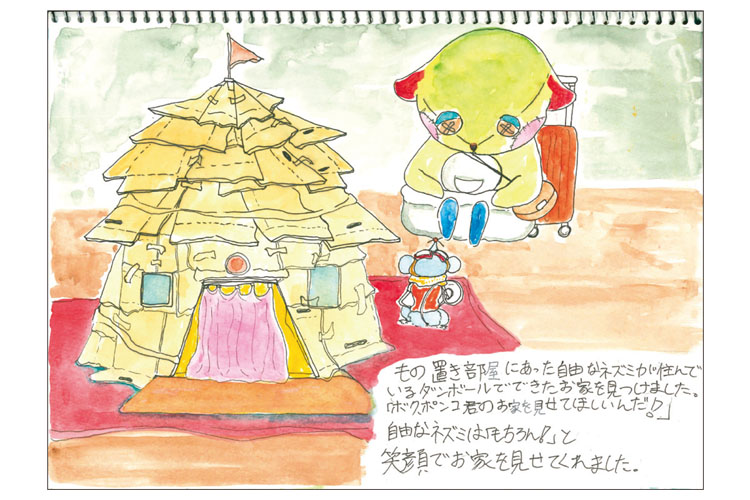 もの置き部屋にあった自由なネズミが住んで
いるダンボールでできたお家を見つけました。
「ボクポンコ君のお家を見せてほしいんだ!?」
自由なネズミは「もちろん!」と
笑顔でお家を見せてくれました。